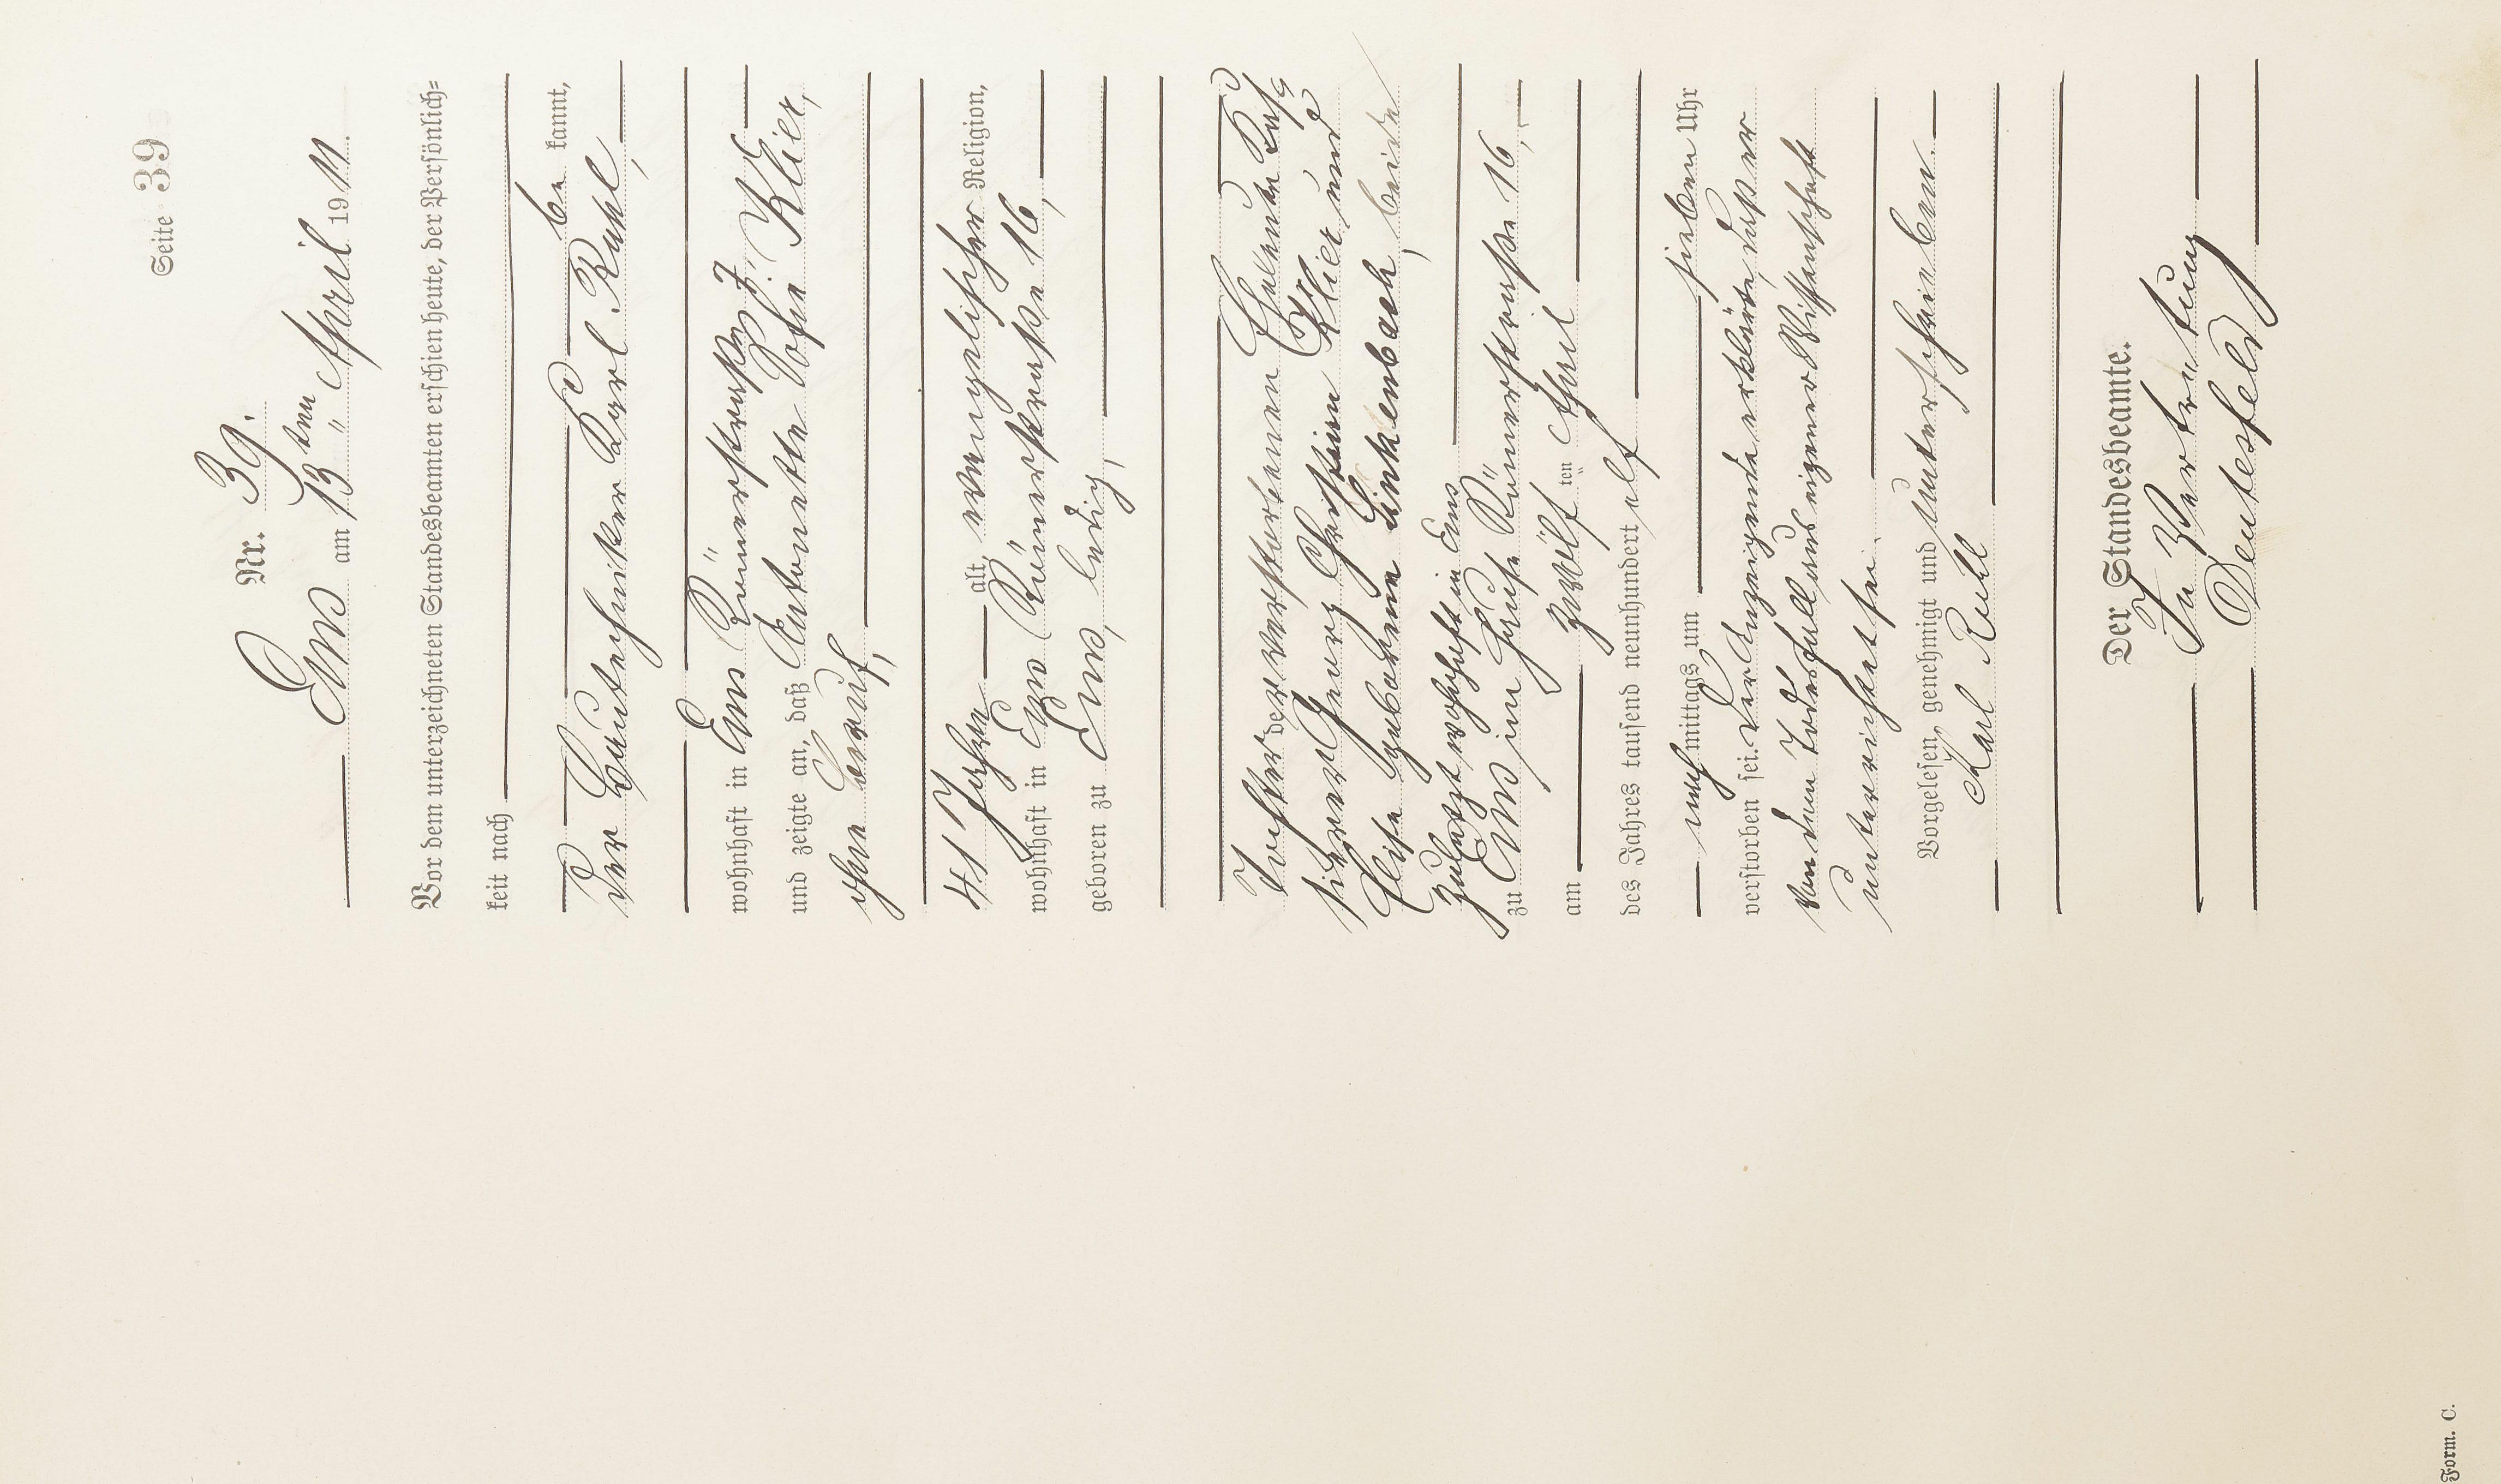 Seite 39
Nr. 39.
Ems am 13ten April 1911.
Vor dem unterzeichneten Standesbeamten erschien heute, der Persönlich-
keit nach
be kannt,
der Bautechniker Karl Ruhl,
wohnhaft in Ems Römerstraße 7.
und zeigte an, daß Antonette Sofie Klier,
ohne Beruf,
41 Jahre alt, evangelischer Religion,
wohnhaft in Ems Römerstraße 16,
geboren zu Ems, ledig,
Tochter der verstorbenen Eheleute
Georg Christian Klier und
Elise geborene Linkenbach, beide
zuletzt wohnhaft in Ems
zu Ems im Hause Römerstraße 16,
am zwölf ten April
des Jahres tausend neunhundert elf
nach mittags um sieben Uhr
verstorben sei. Der Anzeigende erklärte, daß er
von dem Todesfall aus eigener Wissenschaft
unterrichtet sei.
Vorgelesen, genehmigt und unterschrieben.
Karl Ruhl
Der Standesbeamte.
In Vertretung
Deutesfeld
Form. C.